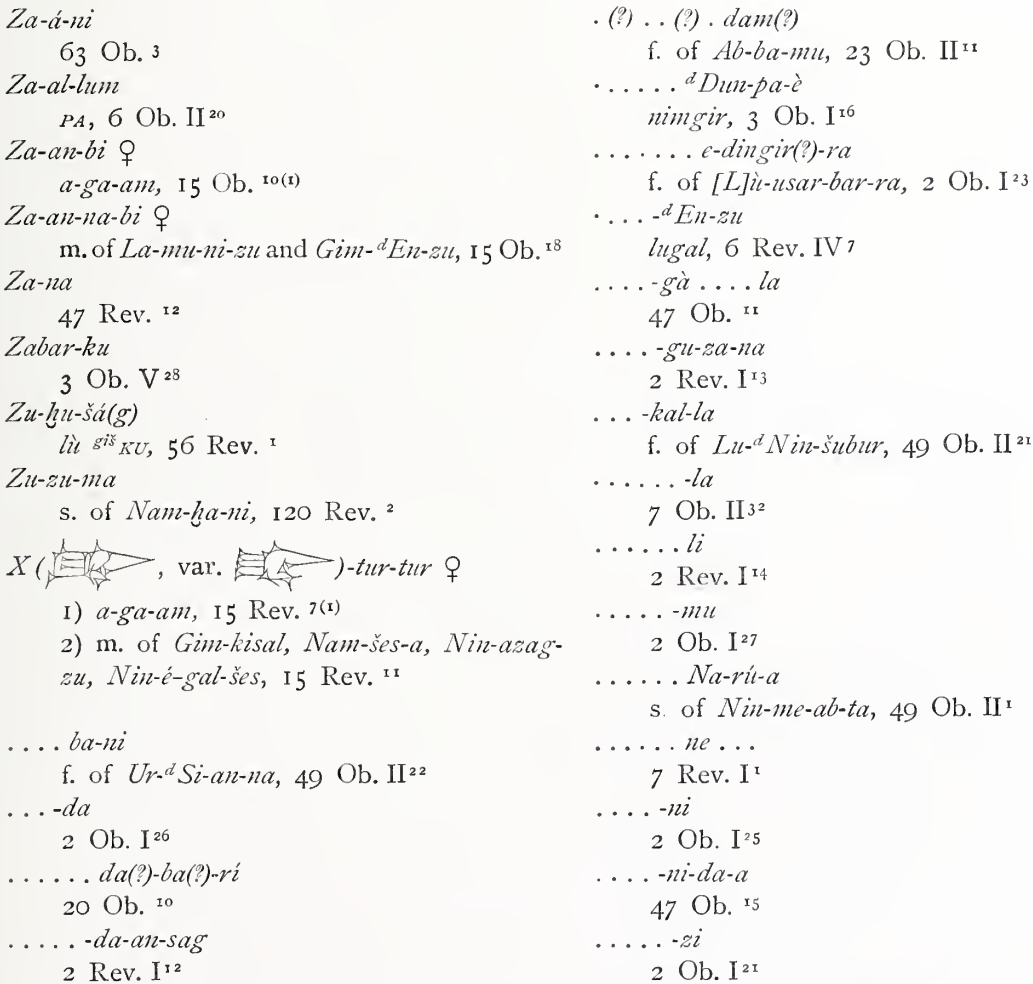 Za-á-ni
63 Ob. 3
Za-al-lum
PA, 6 Ob. II 20
Za-an-bi ♀
a-ga-am, 15 Ob. 10(1)
Za-an-na-bi ♀
m. of La-mu-ni-zu and Gim-dEn-zu, 15 Ob. 18
Za-na
47 Rev. 12
Zabar-ku
3 Ob. V 28
Zu-ḫu-šá(g)
lù gišKU, 56 Rev. 1
Zu-zu-ma
s. of Nam-ḫa-ni, 120 Rev. 2
X ( , var. )-tur-tur ♀
1) a-ga-am, 15 Rev. 7(1)
2) m. of Gim-kisal, Nam-šes-a, Nin-azag-
zu, Nin-é-gal-šes, 15 Rev. 11
. . . . ba-ni
f. of Ur-dSi-an-na, 49 Ob. II 22
. . . -da
2 Ob. I 26
. . . . . . da(?)-ba(?)-rí
20 Ob. 10
. . . . . -da-an-sag
2 Rev. I 12
. (?) . . (?) . dam(?)
f. of Ab-ba-mu, 23 Ob. II 11
. . . . . . dDun-pa-è
nimgir, 3 Ob. I 16
. . . . . . . e-dingir(?)-ra
f. of [L]ù-usar-bar-ra, 2 Ob. I 23
. . . . -dEn-zu
lugal, 6 Rev. IV 7
. . . . -gà . . . . la
47 Ob. 11
. . . . -gu-za-na
2 Rev. I 13
. . . -kal-la
f. of Lu-dNin-šubur, 49 Ob. II 21
. . . . . . -la
7 Ob. II 32
. . . . . . li
2 Rev. I 14
. . . . . -mu
2 Ob. I 27
. . . . . . Na-rú-a
s. of Nin-me-ab-ta, 49 Ob. II 1
. . . . . . ne . . .
7 Rev. I 1
. . . . -ni
2 Ob. I 25
. . . . -ni-da-a
47 Ob. 15
. . . . . -zi
2 Ob. I 21